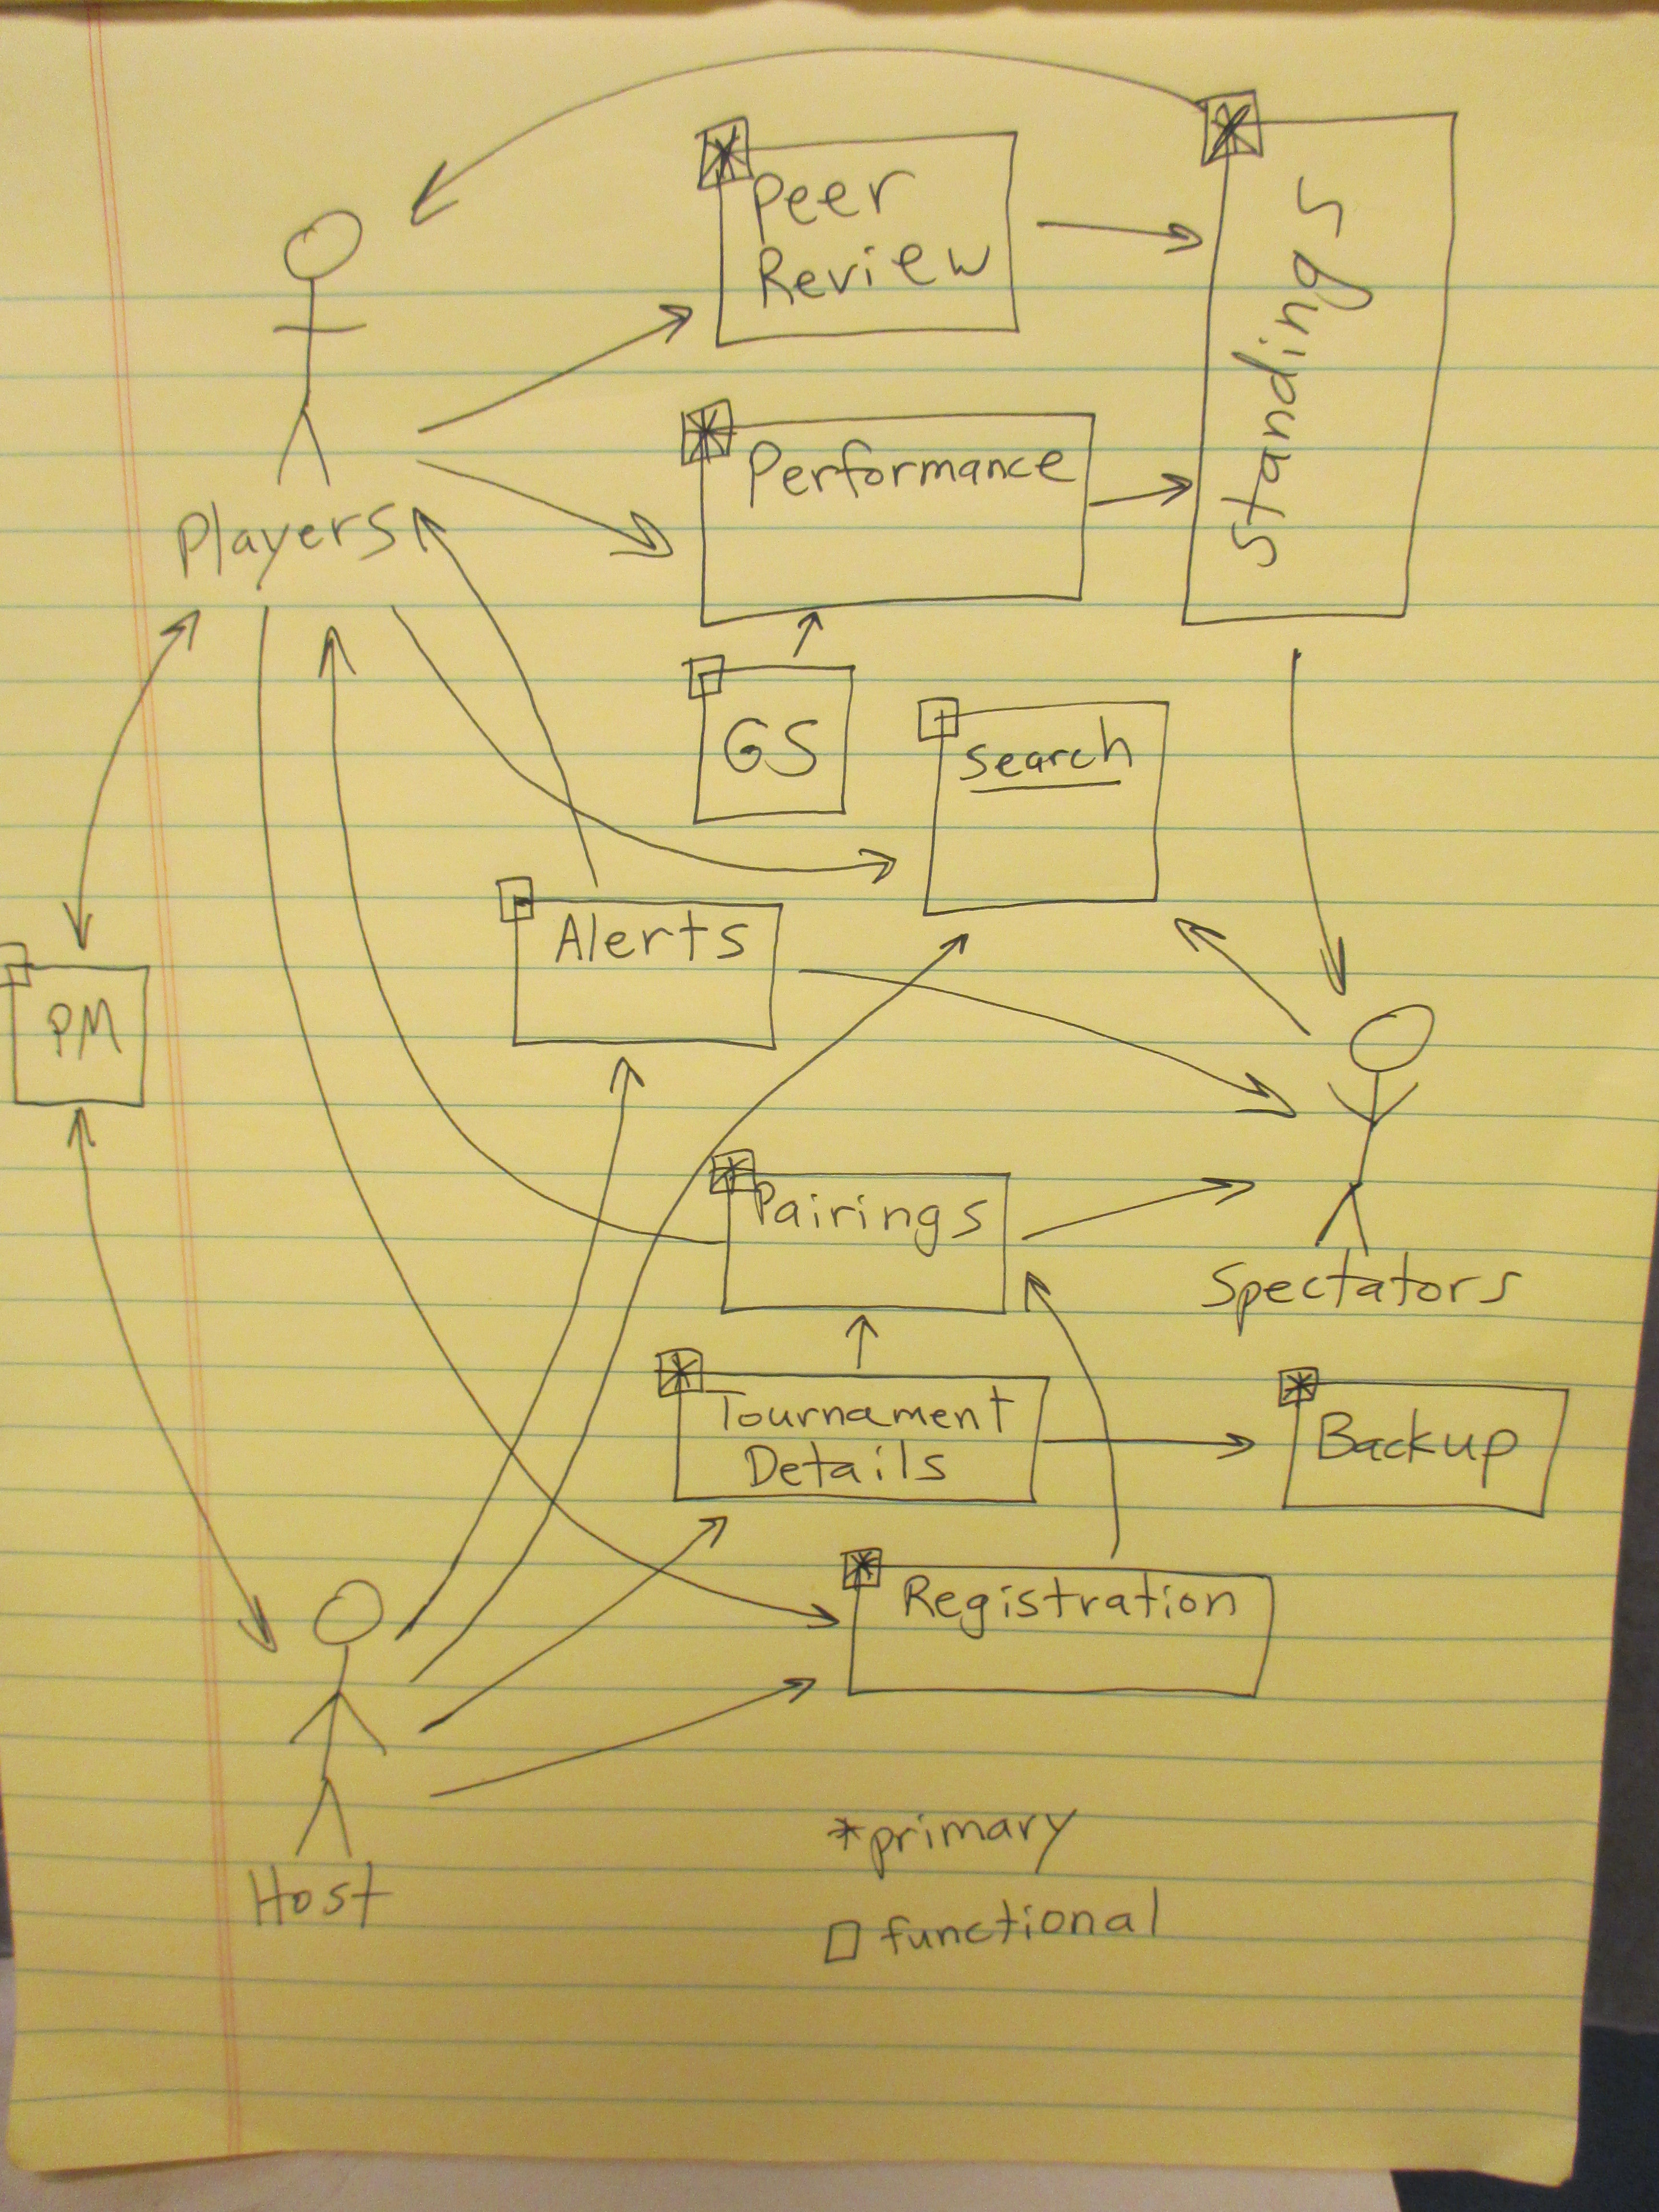 Peer
Review
Standings
Performance
Players
GS
search
Alerts
PM
Pairings
Spectators
Tournament
Details
Backup
Registration
Host
*primary
□ functional